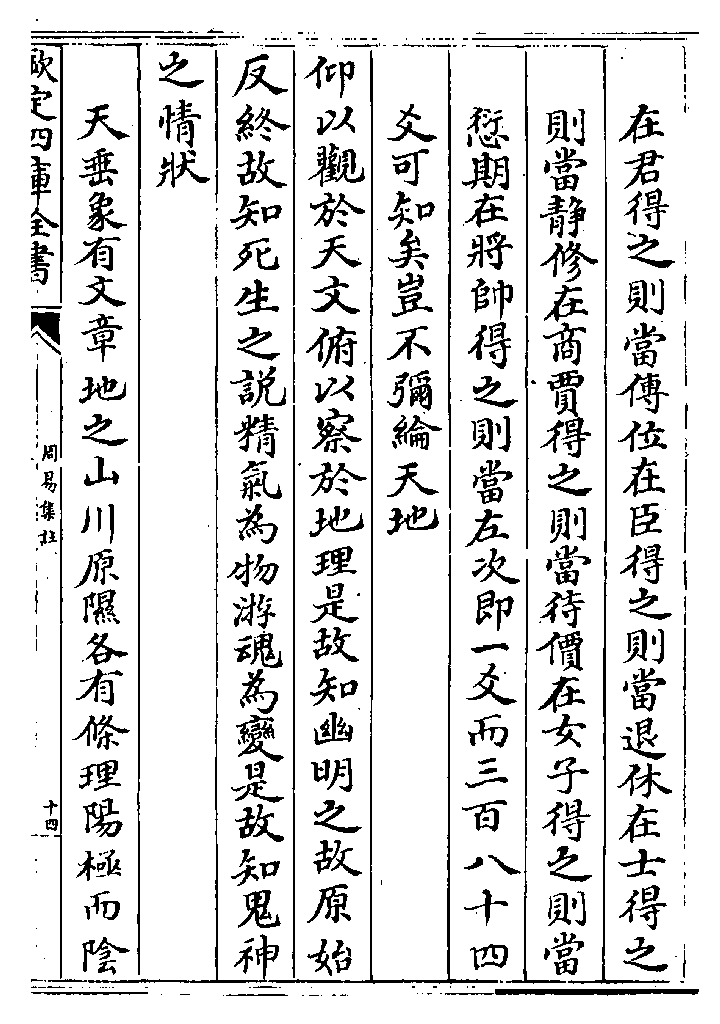 在君得之則當傳位在臣得之則當退休在士得之
則當静修在商賈得之則當待價在女子得之則當
愆期在將帥得之則當左次即一爻而三百八十四
爻可知矣豈不彌綸天地
仰以觀於天文俯以察於地理是故知幽明之故原始
反終故知死生之説精氣為物游魂為變是故知鬼神
之情狀
天垂象有文章地之山川原隰各有條理陽極而陰
欽定四庫全書
周易集註
十四